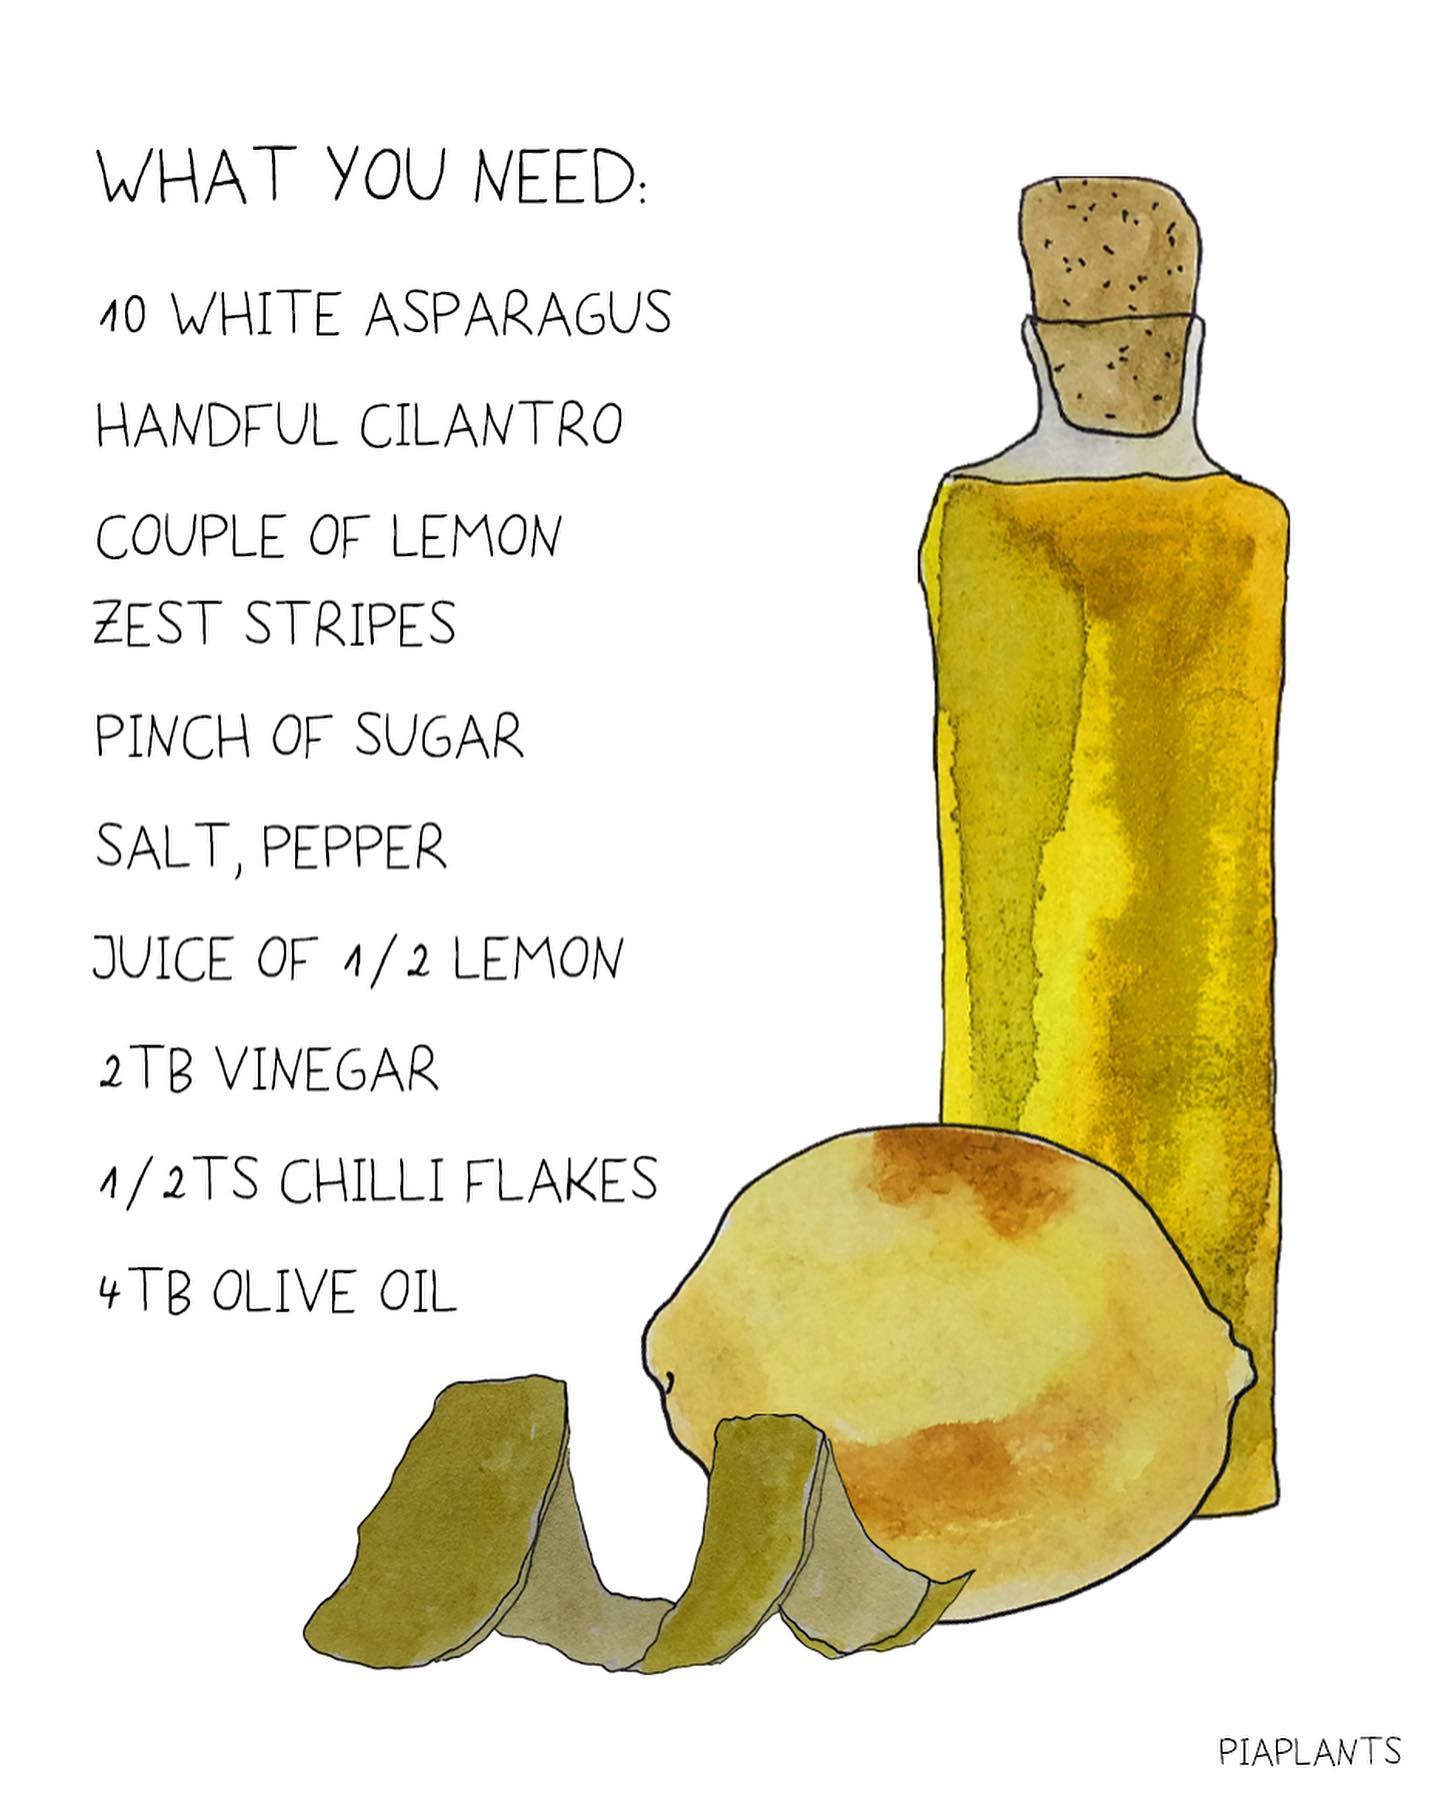 WHAT YOU NEED:
10 WHITE ASPARAGUS
HANDFUL CILANTRO
COUPLE OF LEMON
ZEST STRIPES
PINCH OF SUGAR
SALT, PEPPER
JUICE OF 1/2 LEMON
2TB VINEGAR
1/2TS CHILLI FLAKES
4TB OLIVE OIL
PIAPLANTS